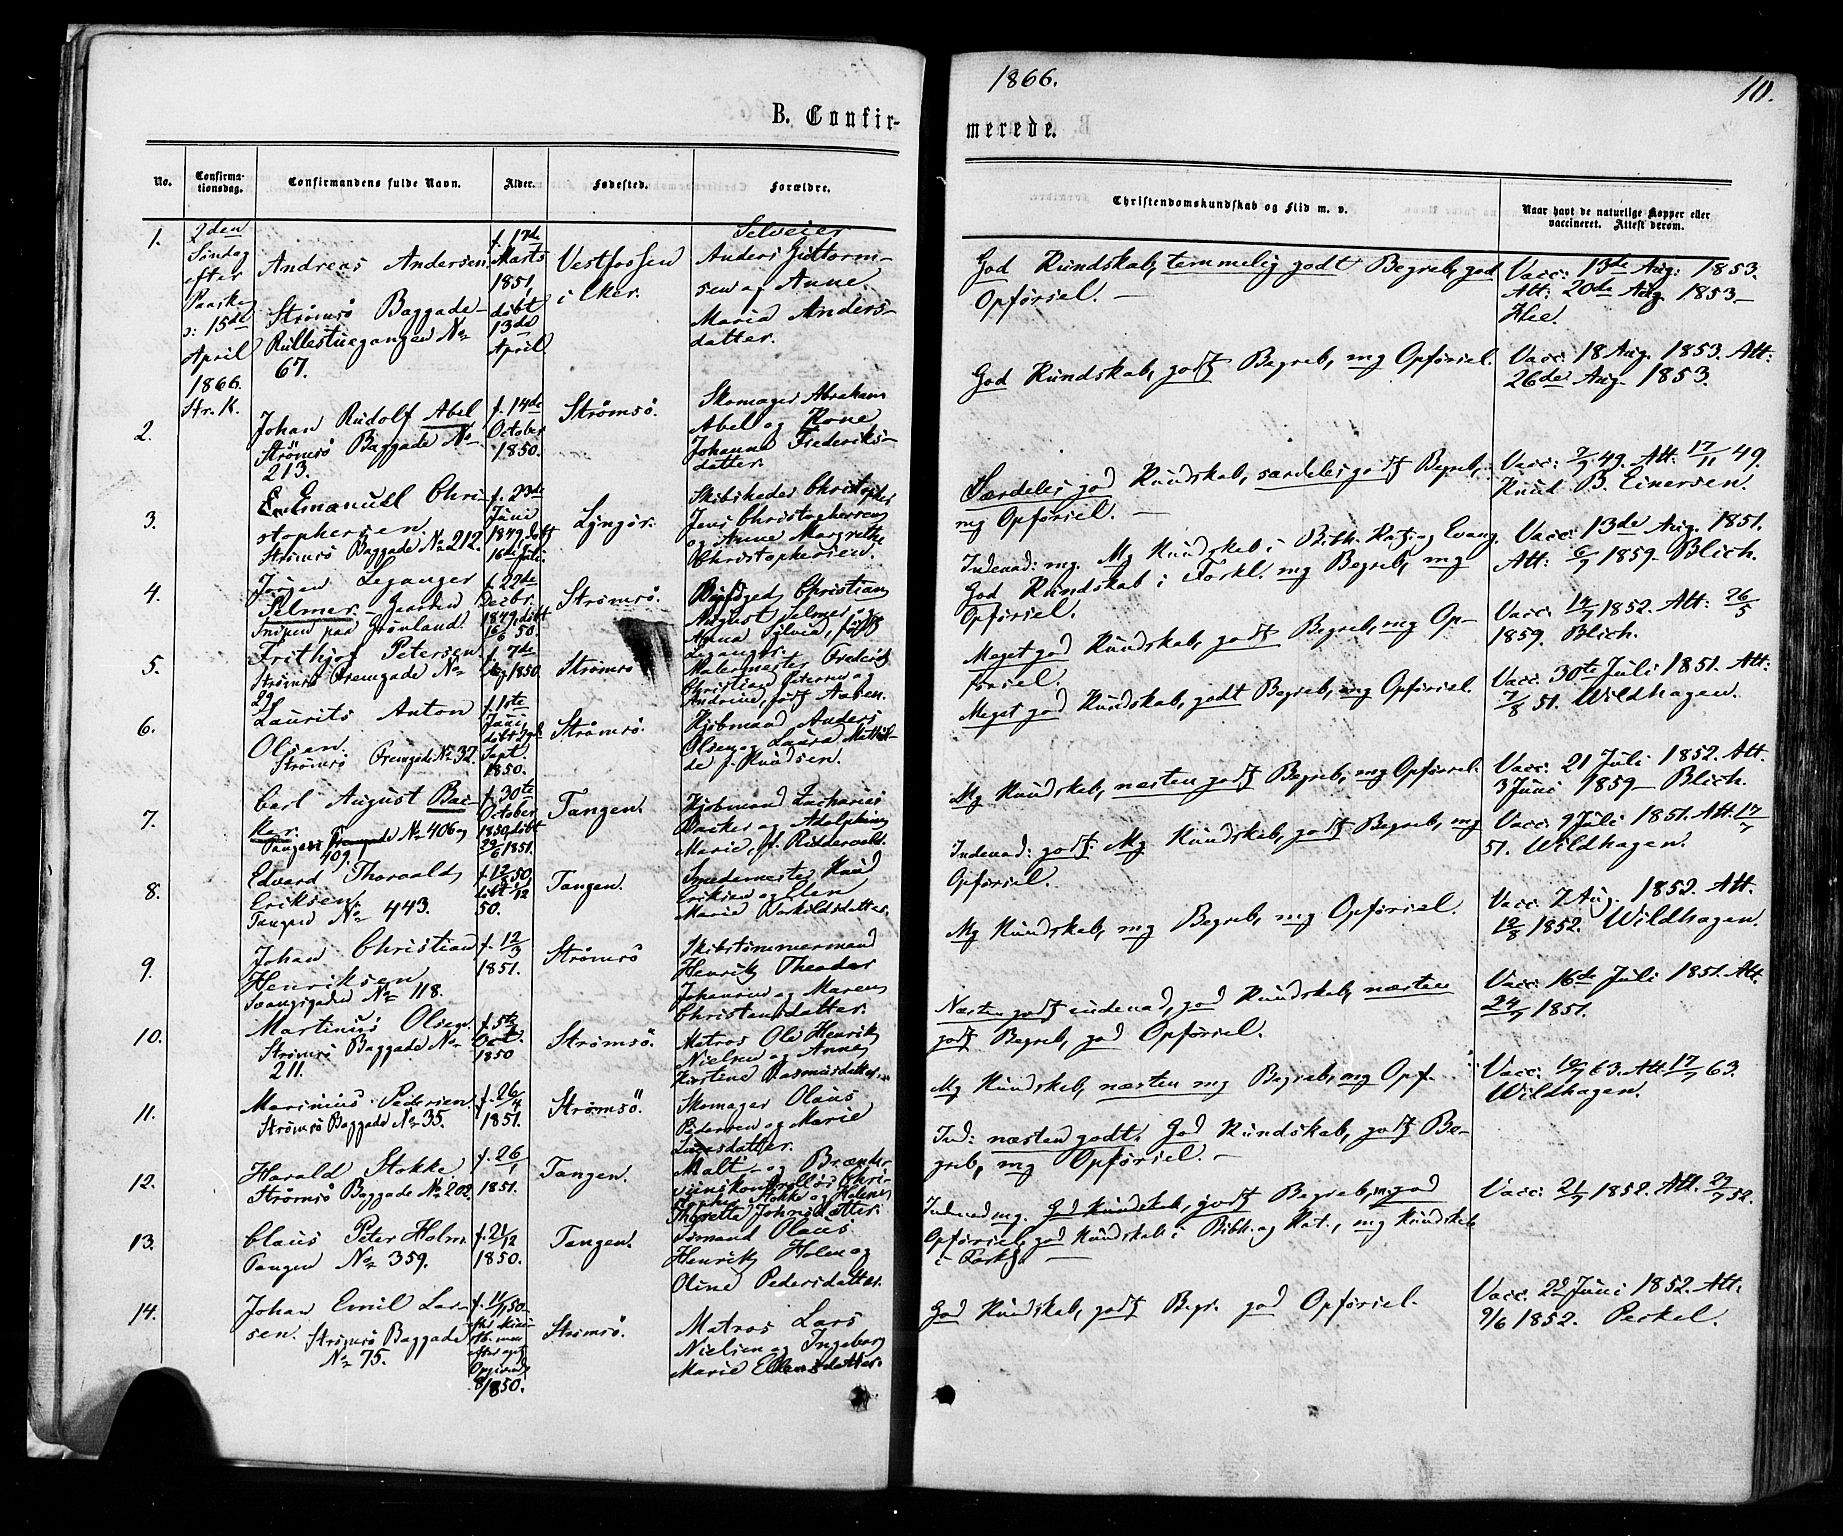 1866.
10.
B. Confir-
merede.
No.
Confirma-
tionsdag.
Confirmandens fulde Navn.
Alder.
Fødested.
Forældre.
Christendomskundskab og Flid m. v.
Naar havt de naturlige Kopper eller
vaccineret. Attest derom.
1.
2den
Søndag
efter
Paaske
ɔ: 15de
April
1866.
Str. K.
Andreas Andersen
Strømsö Baggade
Rullestuegangen No
67.
f. 17de
Marts
1851,
döbt
13de
April
Vestfossen
i Eker.
Selveier
Anders Guttorm-
sen og Anne
Maria Anders-
datter.
God Kundskab, temmelig godt Begreb, god
Opförsel. —
Vacc: 13de Aug: 1853.
Att: 20de Aug. 1853 —
2.
Johan Rudolf Abel
Strömsö Baggade No
213.
f. 14de
October
1850.
Strömsö.
Skomager Abraham
Abel og Kone
Johanne Frederiks-
datter.
God Kundskab, godt Begreb, mg Opförsel.
Vacc: 18 Aug. 1853. Att:
26de Aug. 1853.
3.
Emanuel Chri-
stophersen
Strömsö Baggade No 212.
f. 23de
Juni
1849, döbt
16de Juli.
Lyngör.
Skibsreder Christopher
Jens Christophersen
og Anne Margrethe
Christophersen.
Særdeles god Kundskab, særdeles godt Begreb,
mg Opförsel. —
Vacc: 2/7 49. Att: 17/11 49.
Knud B. Einersen.
4.
Jürgen Leganger
Selmer - Gaarden
Snipen paa Grönland.
f. 22de
Decbr.
1849, döbt
16/6 50.
Strömsö.
Byfoged Christian
August Selmer og
Anna Sylvia, född
Leganger.
Indenad: mg. Mg Kundskab i Bibh. Kat. og Evang.
God Kundskab i Forkl. mg Begreb, mg
Opförsel.
Vacc: 13de Aug. 1851.
Att: 6/7 1859. Blich.
5.
Frithjof Petersen
Strömsö Fremgade No
29
f. 7de
1850.
Strömsö
Malermester Frederik
Christian Petersen og
Andrine, född Aaben.
Meget god Kundskab, godt Begreb, mg Op-
försel.
Vacc: 14/7 1852. Att: 26/5
1859. Blich.
6.
Laurits Anton
Olsen.
Strömsö Fremgade No 32.
f. 1ste
Juni,
döbt 2den
Sept.
1850.
Strömsö.
Kjöbmand Anders
Olsen og Laura Mathil-
de f. Knudsen.
Meget god Kundskab, godt Begreb, mg Opförsel.
Vacc: 30te Juli 1851. Att:
7/8 51. Wildhagen.
7.
Carl August Bac-
ker.
Tangen Fremgade No 406 og
409.
f. 30te
October
1850, döbt
29/6 1851.
Tangen.
Kjöbmand Zacharias
Backer og Adolphine
Marie, f. Riddervold.
Mg Kundskab, næsten godt Begreb, mg Opförsel.
Vacc: 21 Juli 1852. Att.
3 Juni 1859 — Blich.
8.
Edvard Thorvald
Eriksen.
Tangen No 443.
f. 12/8 50,
döbt 1/12
50.
Tangen.
Smedemester Knud
Eriksen og Elen
Marie Torkildsdatter.
Indenad: godt. Mg Kundskab, godt Begreb, mg
Opförsel.
Vacc: 9 Juli 1851. Att. 17/7
51. Wildhagen.
9.
Johan Christian
Henriksen
Svangsgade No 118.
f. 12/3
1851.
Strömsö
Skibstömmermand
Henrik Theodor
Johansen og Maren
Christensdatter.
Mg Kundskab, mg Begreb, mg Opförsel.
Vacc: 7 Aug. 1852. Att.
18/8 1852. Wildhagen.
10.
Martinius Olsen.
Strömsö Baggade No
211.
f. 5te
Oct.
1850
Strömsö.
Matros Ole Henrik
Nielsen og Anne
Kirstine Rasmusdatter.
Næsten godt indenad, god Kundskab, næsten
godt Begreb, god Opförsel.
Vacc: 16de Juli 1851. Att.
24/7 1851.
11.
Marinius Pedersen.
Strömsö Baggade No 35.
f. 26/4
1851.
Strömsö.
Skomager Olaus
Pedersen og Marie
Larsdatter.
Mg Kundskab, næsten mg Begreb, mg Opf.
Vacc: 10/7 63. Att. 17/7 63.
Wildhagen.
12.
Harald Stokke
Strömsö Baggade No 202.
f. 26/1
1851.
Tangen.
Malt- og Brænde-
viinskontrollör Chri-
stopher Stokke og Helene
Thorette Johnsdatter.
Ind: næsten godt. God Kundskab, godt Be-
greb, mg Opförsel. —
13.
Claus Peter Holm
Tangen No 359.
f. 21/12
1850.
Tangen.
Sömand Olaus
Henrik Holm og
Oline Pedersdatter.
Indenad mg. God Kundskab, godt Begreb, mg god
Opförsel, god Kundskab i Bibh. og Kat., mg Kundskab
i Forkl. —
Vacc: 21/7 1852. Att. 29/7 52.
14.
Johan Emil Lar-
sen.
Strömsö Baggade
No 75.
f. 1/1 50
efter
Opgivende
8/1850.
Strömsö.
Matros Lars
Nielsen og Ingeborg
Marie Ellensdatter.
God Kundskab, godt Begr. god Opförsel.
Vacc: 22 Juni 1852. Att.
9/6 1852. Peckel.